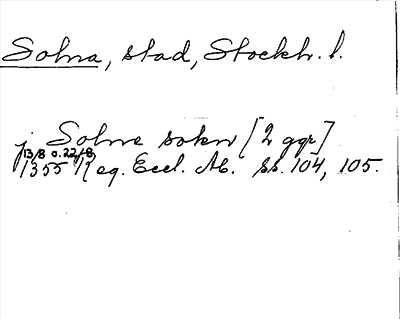 Solna, stad, Stockh. l.
j Solne sokn [2 ggr]
13/8 o. 22/8
1355 Reg. Eccl. Ab. ss. 104, 105.